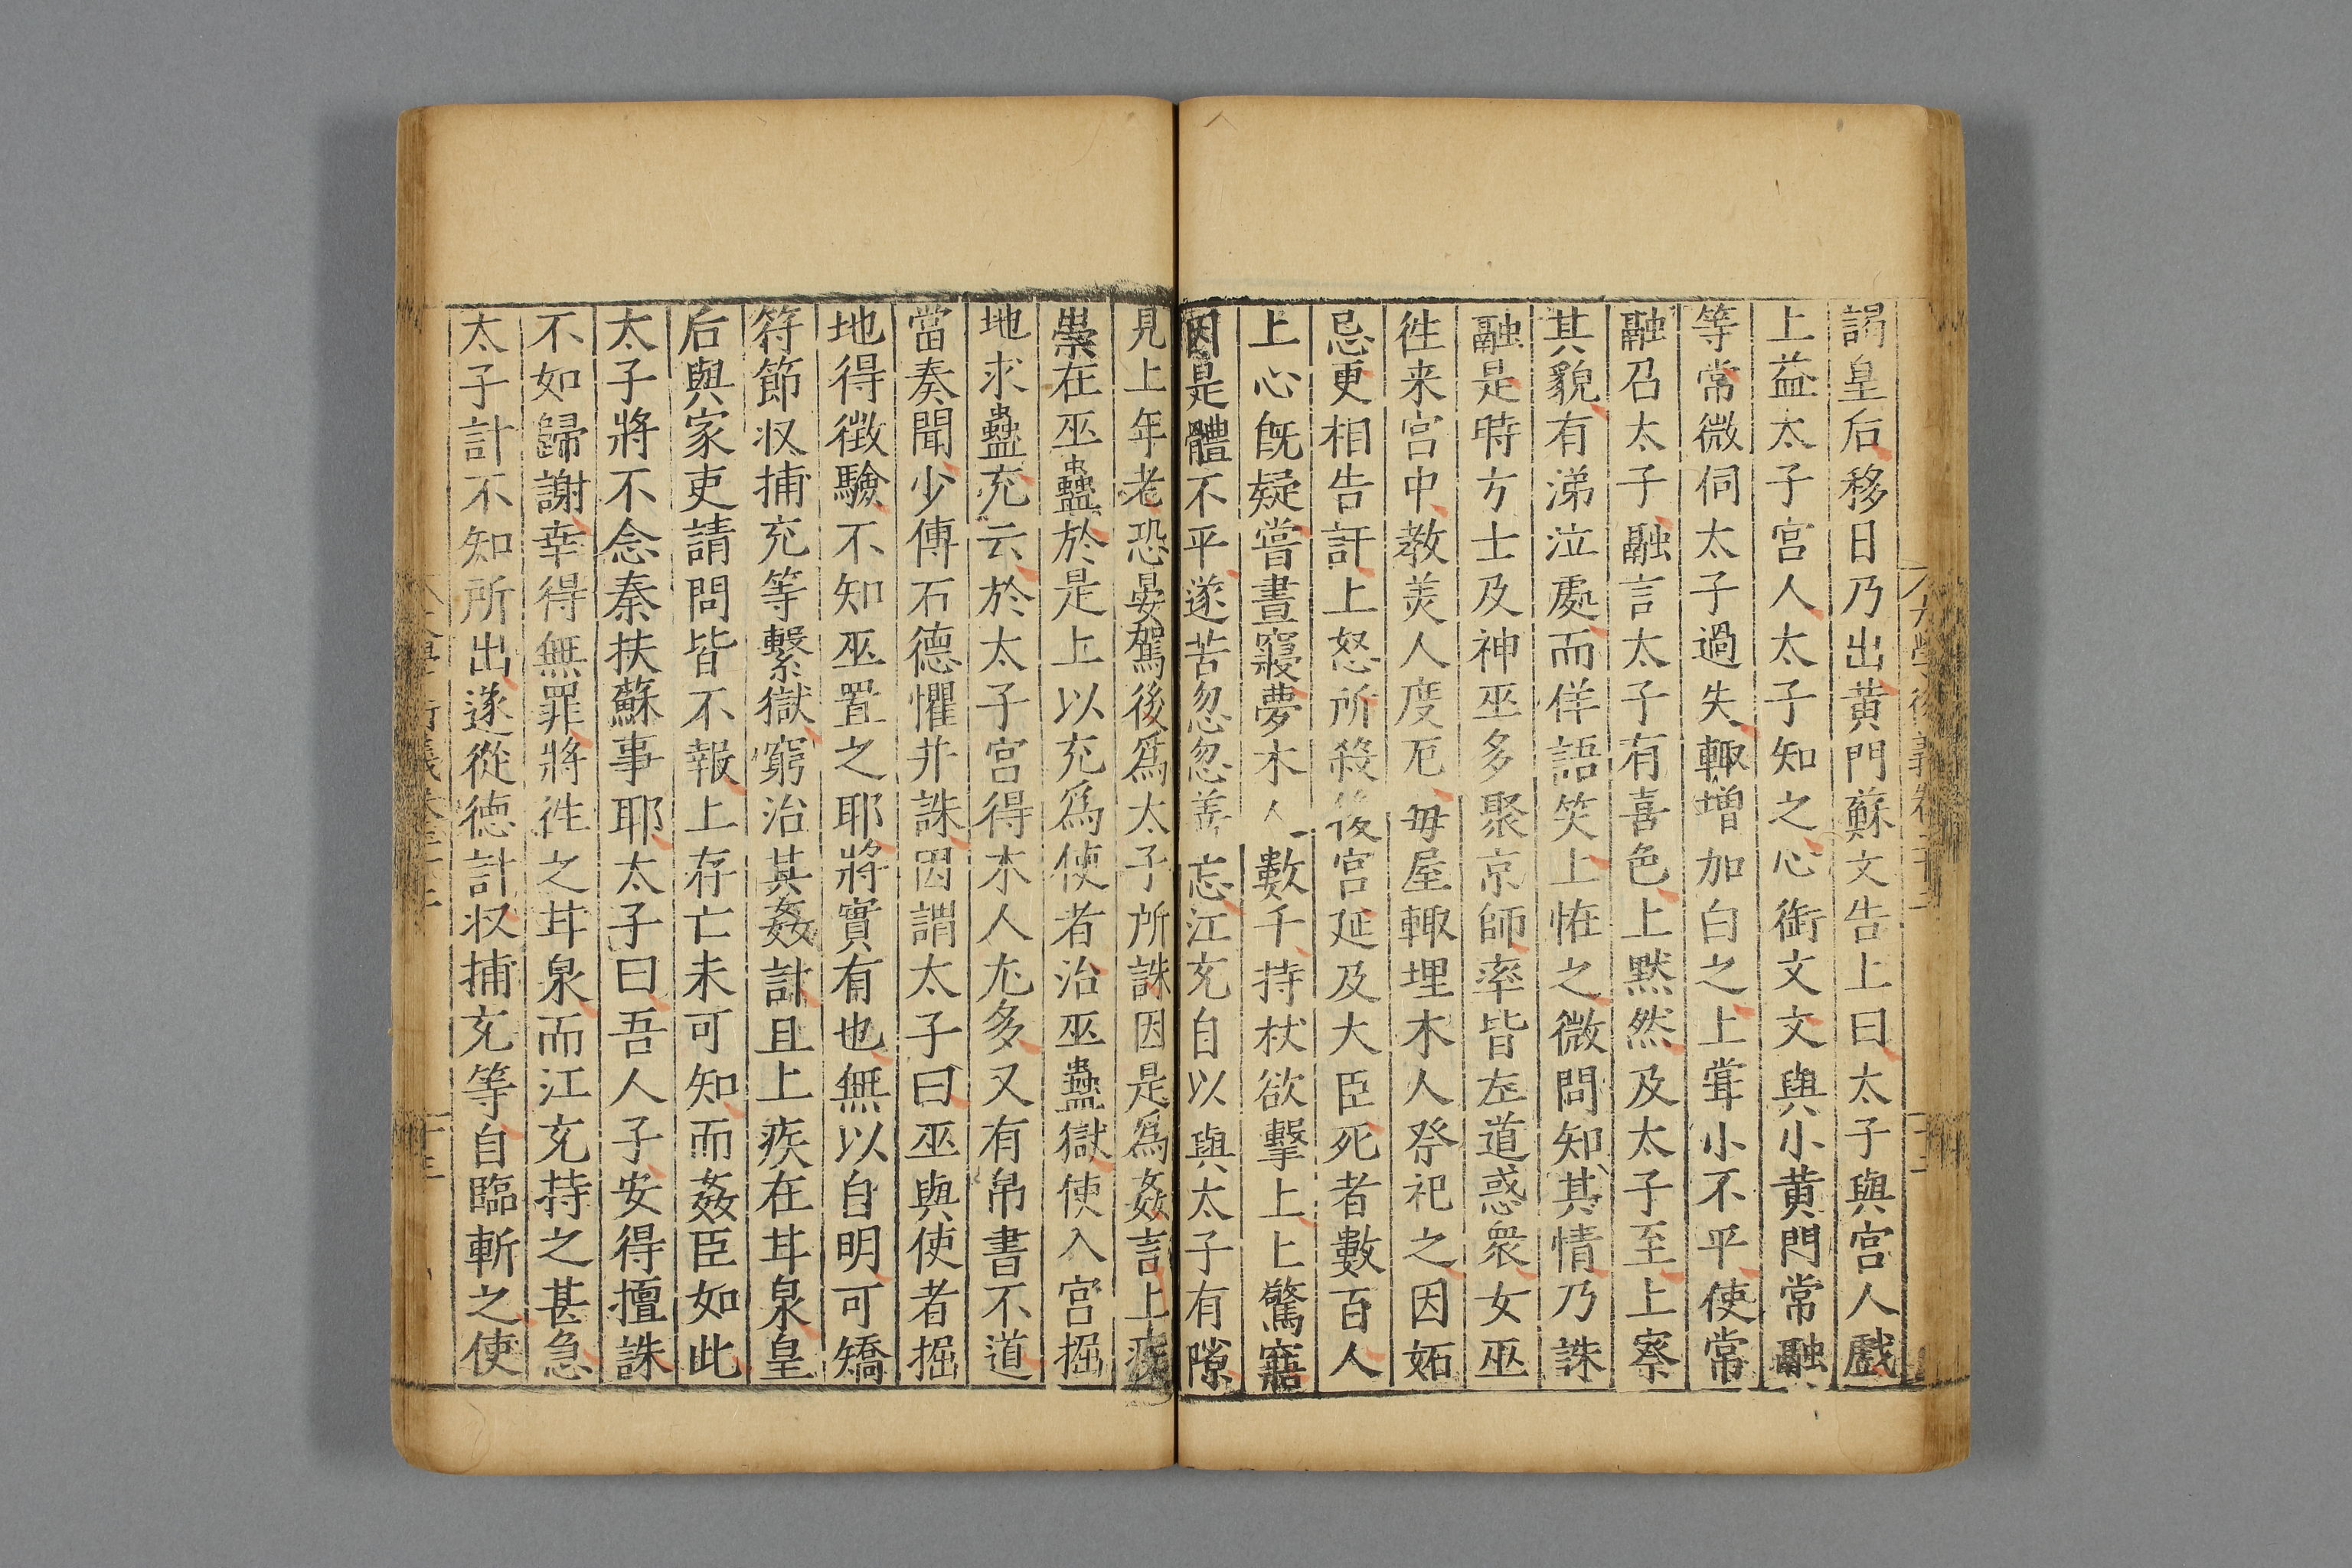 謁皇后移日乃出黄門蘇文告上曰太子與宮人戲
上益太子宮人太子知之心銜文文與小黄門常融
等常微伺太子過失輙增加白之上甞小不平使常
融召太子融言太子有喜色上黙然及太子至上察
其貌有涕泣處而佯語笑上恠之微問知其情乃誅
融是時方士及神巫多聚京師率皆左道惑衆女巫
徃来宮中教美人度厄毎屋輙埋木人祭祀之因妬
忌更相告訐上怒所殺後宮延及大臣死者數百人
上心旣疑嘗晝寢夢木人數千持杖欲擊上上驚寤
因是體不平遂苦忽忽善忘江充自以與太子有隙
見上年老恐晏駕後爲太子所誅因是爲姦言上疾
祟在巫蠱於是上以充爲使者治巫蠱獄使入宮掘
地求蠱充云於太子宮得木人尤多又有帛書不道
當奏聞少傅石德懼并誅因謂太子曰巫與使者掘
地得徴驗不知巫置之耶將實有也無以自明可矯
符節収捕充等繫獄窮治其姦計且上疾在甘泉皇
后與家吏請問皆不報上存亡未可知而姦臣如此
太子將不念秦扶蘇事耶太子曰吾人子安得擅誅
不如歸謝幸得無罪將徃之甘泉而江充持之甚急
太子計不知所出遂從德計収捕充等自臨斬之使